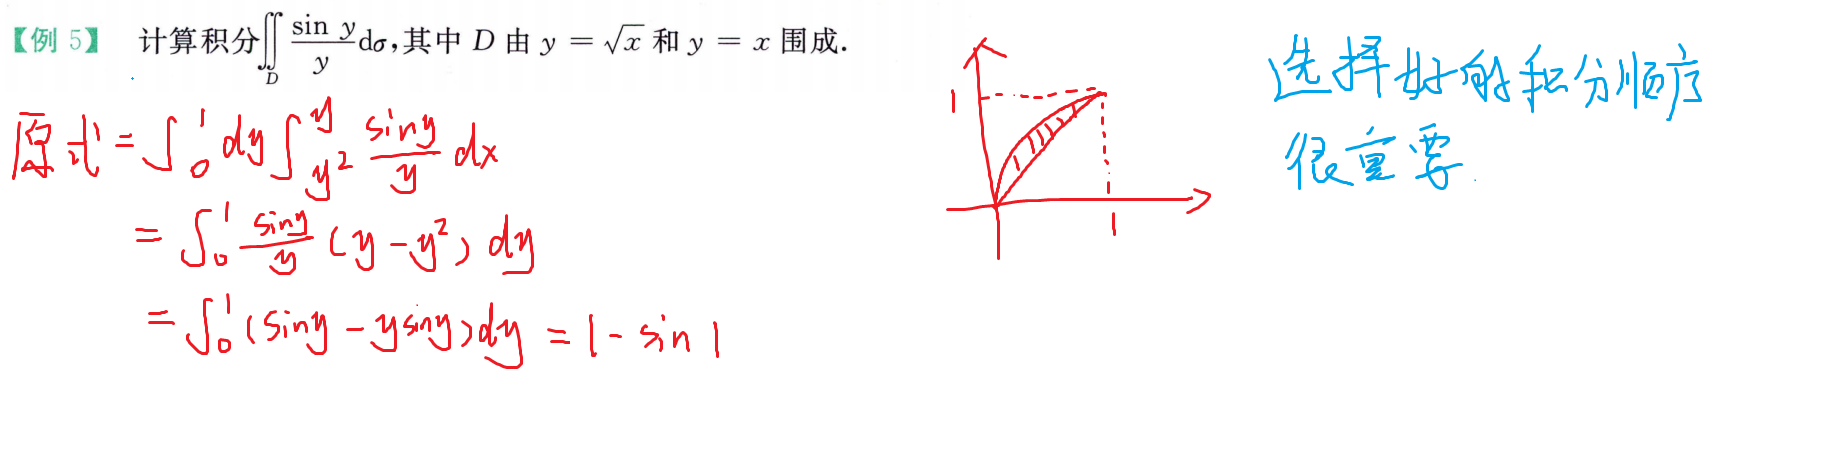 【例 5】 计算积分∬_D (sin y)/y dσ,其中 D 由 y = √x 和 y = x 围成.
原式 = ∫₀¹ dy ∫_{y²}^{y} (sin y)/y dx
= ∫₀¹ (sin y)/y (y - y²) dy
= ∫₀¹ (sin y - y sin y) dy = 1 - sin 1
1
1
选择好的积分顺序
很重要.